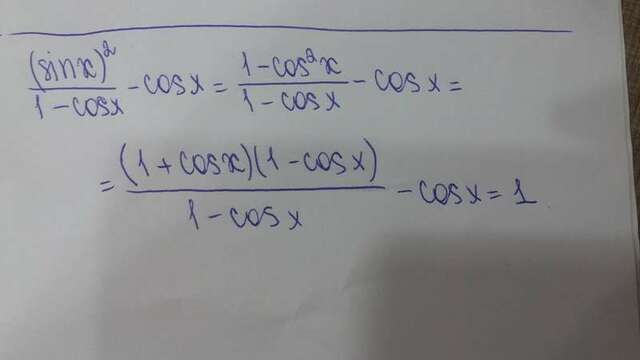 (sinx)²/(1-cosx) - cosx = (1-cos²x)/(1-cosx) - cosx =
= (1+cosx)(1-cosx)/(1-cosx) - cosx = 1